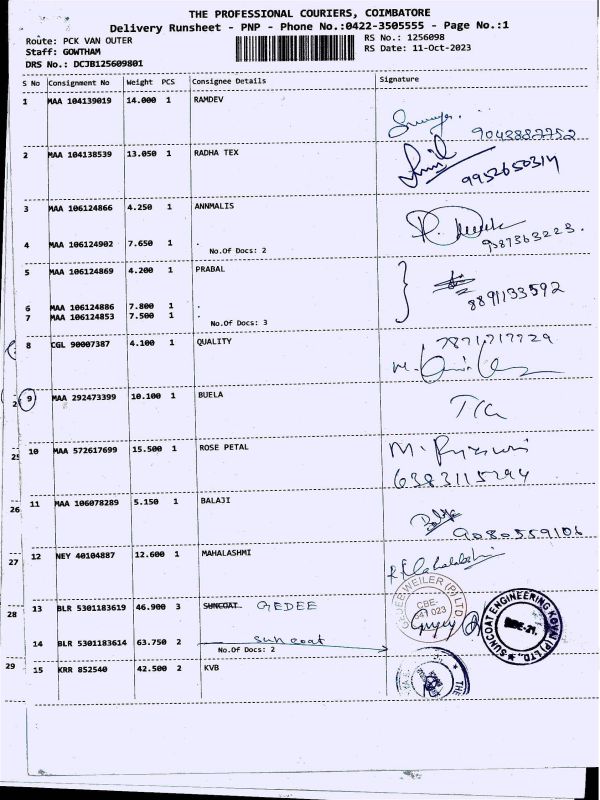 THE PROFESSIONAL COURIERS, COIMBATORE
Delivery Runsheet - PNP - Phone No.:0422-3505555 - Page No.:1
Route: PCK VAN OUTER RS No.: 1256098
Staff: GOWTHAM RS Date: 11-Oct-2023
DRS No.: DCJB125609801
S No Consignment No Weight PCS Consignee Details Signature
1 MAA 104139019 14.000 1 RAMDEV
9043882752
2 MAA 104138539 13.050 1 RADHA TEX
9952650314
3 MAA 106124866 4.250 1 ANNMALIS
4 MAA 106124902 7.650 1 .
No.Of Docs: 2
5 MAA 106124869 4.200 1 PRABAL
8891133592
6 MAA 106124886 7.800 1 .
7 MAA 106124853 7.500 1 .
No.Of Docs: 3
8 CGL 90007387 4.100 1 QUALITY
9 MAA 292473399 10.100 1 BUELA
10 MAA 572617699 15.500 1 ROSE PETAL
6383115294
25
11 MAA 106078289 5.150 1 BALAJI
9080559106
26
12 NEY 40104887 12.600 1 MAHALASHMI
27
13 BLR 5301183619 46.900 3 SUNCOAT GEDEE
28
14 BLR 5301183614 63.750 2 Sun coat
No.Of Docs: 2
GEDEE WEILER (P) LTD
CBE-
641 023
SUNCOAT ENGINEERING KOVAI (P) LTD.,
CBE-21.
29
15 KRR 852540 42.500 2 KVB
THE